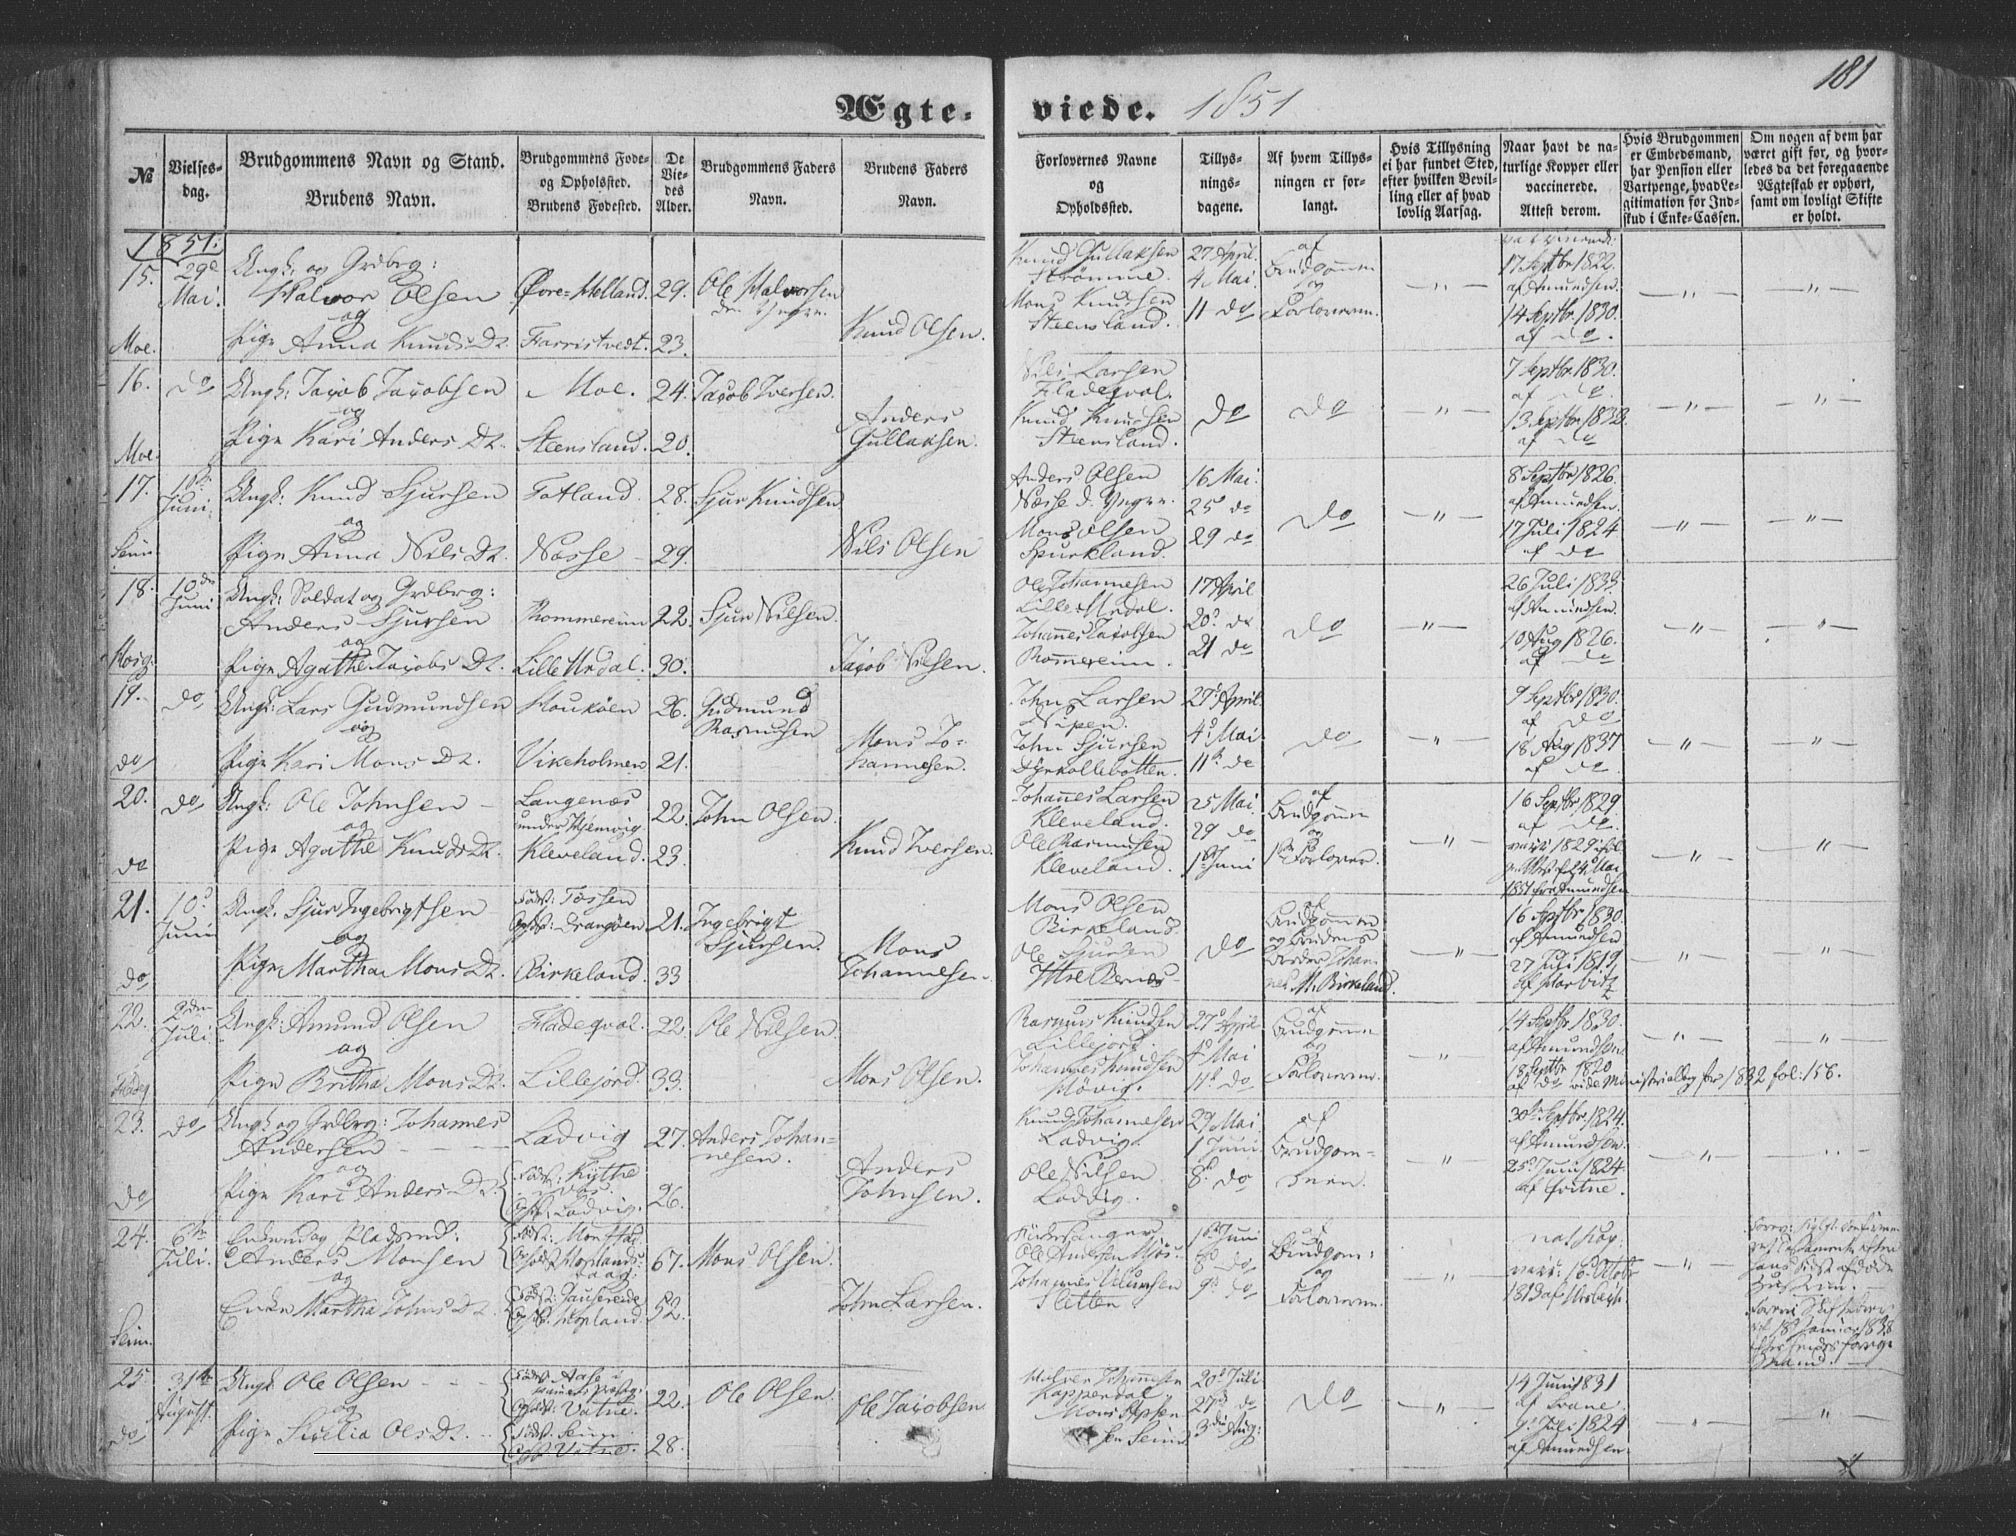 181
Ægte- viede. 1851
№
Vielses-
dag.
Brudgommens Navn og Stand.
Brudens Navn.
Brudgommens Føde-
og Opholssted.
Brudens Fødested.
De
Vie-
des
Alder.
Brudgommens Faders
Navn.
Brudens Faders
Navn.
Forlovernes Navne
og
Opholdssted.
Tillys-
nings-
dagene.
Af hvem Tillys-
ningen er for-
langt.
Hvis Tillysning
ei har fundet Sted,
efter hvilken Bevil-
ling eller af hvad
lovlig Aarsag.
Naar havt de na-
turlige Kopper eller
vaccinerede.
Attest derom.
Hvis Brudgommen
er Embedsmand,
har Pension eller
Vartpenge, hvad Le-
gitimation for Ind-
skud i Enke-Cassen.
Om nogen af dem har
været gift før, og hvor-
ledes da det foregaaende
Ægteskab er ophørt,
samt om lovligt Skifte
er holdt.
1851.
15. 29de Mai. Ungk: og Grdbrg:
Halvor Olsen Øvre-Melland. 29. Ole Halvorsen
den Yngre.
og
Moe. Pige Anna Knuds Dt. Farristvedt. 23. Knud Olsen.
Knud Gullaksen
Strømme.
Mons Knudsen
Steensland.
27 April.
4 Mai.
11 do
af
Brudgommen
og
Forloverne.
17 Septbr 1822.
af Amundsen.
14 Septbr. 1830.
af do.
16. do Ungk: Jacob Jacobsen Moe. 24. Jacob Iversen.
og
Moe. Pige Kari Anders Dt. Steensland. 20. Anders
Gullaksen.
Nils Larsen
Fladeqval.
Knud Knudsen
Steensland.
do do
7 Septbr 1830.
af do
13 Septbr 1832.
af do
17. 10de Juni. Ungk: Knud Sjursen Fotland. 28. Sjur Knudsen
og
Seim Pige Anna Nils Dt. Næsse 29. Nils Olsen
Anders Olsen
Næsse d. Yngre.
Mons Olsen
Spurkland.
16 Mai.
25 do
29 do
do
8 Septbr 1826.
af Amundsen.
17 Juli 1824
af do
18. 10de Juni Ungk: Soldat og Grdbrg:
Anders Sjursen Rommereim 22. Sjur Nilsen.
og
Pige Agathe Jacobs Dt. Lille Urdal. 30. Jacob Nilsen.
Ole Johannesen
Lille Urdal.
Johannes Jacobsen
Rommereim.
17 April
20 do
21 do
do
26 Juli 1833.
af Amundsen.
10 Aug 1826.
af do
19. do Ungk: Lars Gudmundsen 26. Gudmund
Rasmusen
og
do Pige Kari Mons Dt. Vikeholmen 21. Mons Jo-
hannesen.
John Larsen
Nipen.
John Sjursen
Dyrkollebotten.
27 April.
4 Mai.
11 do
do
9 Septbr 1830.
af do
18 Aug 1837
af do
20. do Ungk: Ole Johnsen Langenæs
under Hjemvig. 22. John Olsen.
og
do Pige Agathe Knuds Dt. Kleveland. 23. Knud Iversen.
Johannes Larsen
Kleveland.
Ole Rasmusen
Kleveland.
25 Mai.
29 do
1ste Juni
af
Brudgommen
og
1ste Forlover.
16 Septbr 1829
af do.
1851 fra Amundsen
21. 10de Juni Ungk. Sjur Ingebrigtsen Født: Tossen
Ophst: Drangøen. 21. Ingebrigt
Sjursen.
og
do Pige Martha Mons Dt. Birkeland. 33 Mons
Johannesen.
Mons Olsen
Birkeland.
Ole Sjursen
Yttre Bernæs
do
af
Brudgommen
og Brudens
Broder Johan-
nes M. Birkeland.
16 Septbr 1830.
af Amundsen
27 Juli 1819.
af Harbitz
22. 2den Juli Ungk: Amund Olsen Fladeqval. 22. Ole Nilsen.
og
Pige Britha Mons Dt. Lillejord. 33. Mons Olsen.
Rasmus Knudsen
Lillejord.
Johannes Knudsen
Høvig.
27 April
4 Mai
11 do
af
Brudgommen
og
Forloverne.
14 Septbr 1830.
af Amundsen
18 Septbr 1820
af do vide Ministerialbog for 1832 fol: 156.
23. do Ungk og Grdbrg: Johannes
Andersen Ladvig 27. Anders Johan-
nesen.
og
do Pige Kari Anders Dt. Født: Kythe
Ophst: Ladvig. 26. Anders
Johnsen.
Knud Johannesen
Ladvig.
Ole Nilsen
Ladvig.
29 Mai.
1 Juni
8 do
af
Brudgom-
men
30 Septbr. 1824.
af Amundsen.
25 Juni 1824
24. 6te Juli. Enkemand og Pladsmd:
Anders Monsen Født: Monstad.
Ophst: Hopland 67. Mons Olsen.
og
Seim. Enke Martha Johns Dt. Ophst. Hopland. 52. John Larsen.
Kirkesanger
Ole Andersen Mjøs.
Johannes Villumsen
Sletten
1ste Juni
8 do
9 do
af
Brudgom:
og
Forloverne.
nat Kop.
vacc: 16 October
1813
25. 31te August. Ungk: Ole Olsen Født: Aase i
Ophst: Vatne. 22. Ole Olsen.
og
do Pige Sicelia Ols Dt. Født: Seim
Ophst: Vatne. 28. Ole Jacobsen
Halvor Johannesen
Kappendal
Mons Jepsen
Seim
20 Juli
27 do
3die Aug:
do
14 Juni 1831
af Svane.
9 Juli 1824
af Amundsen